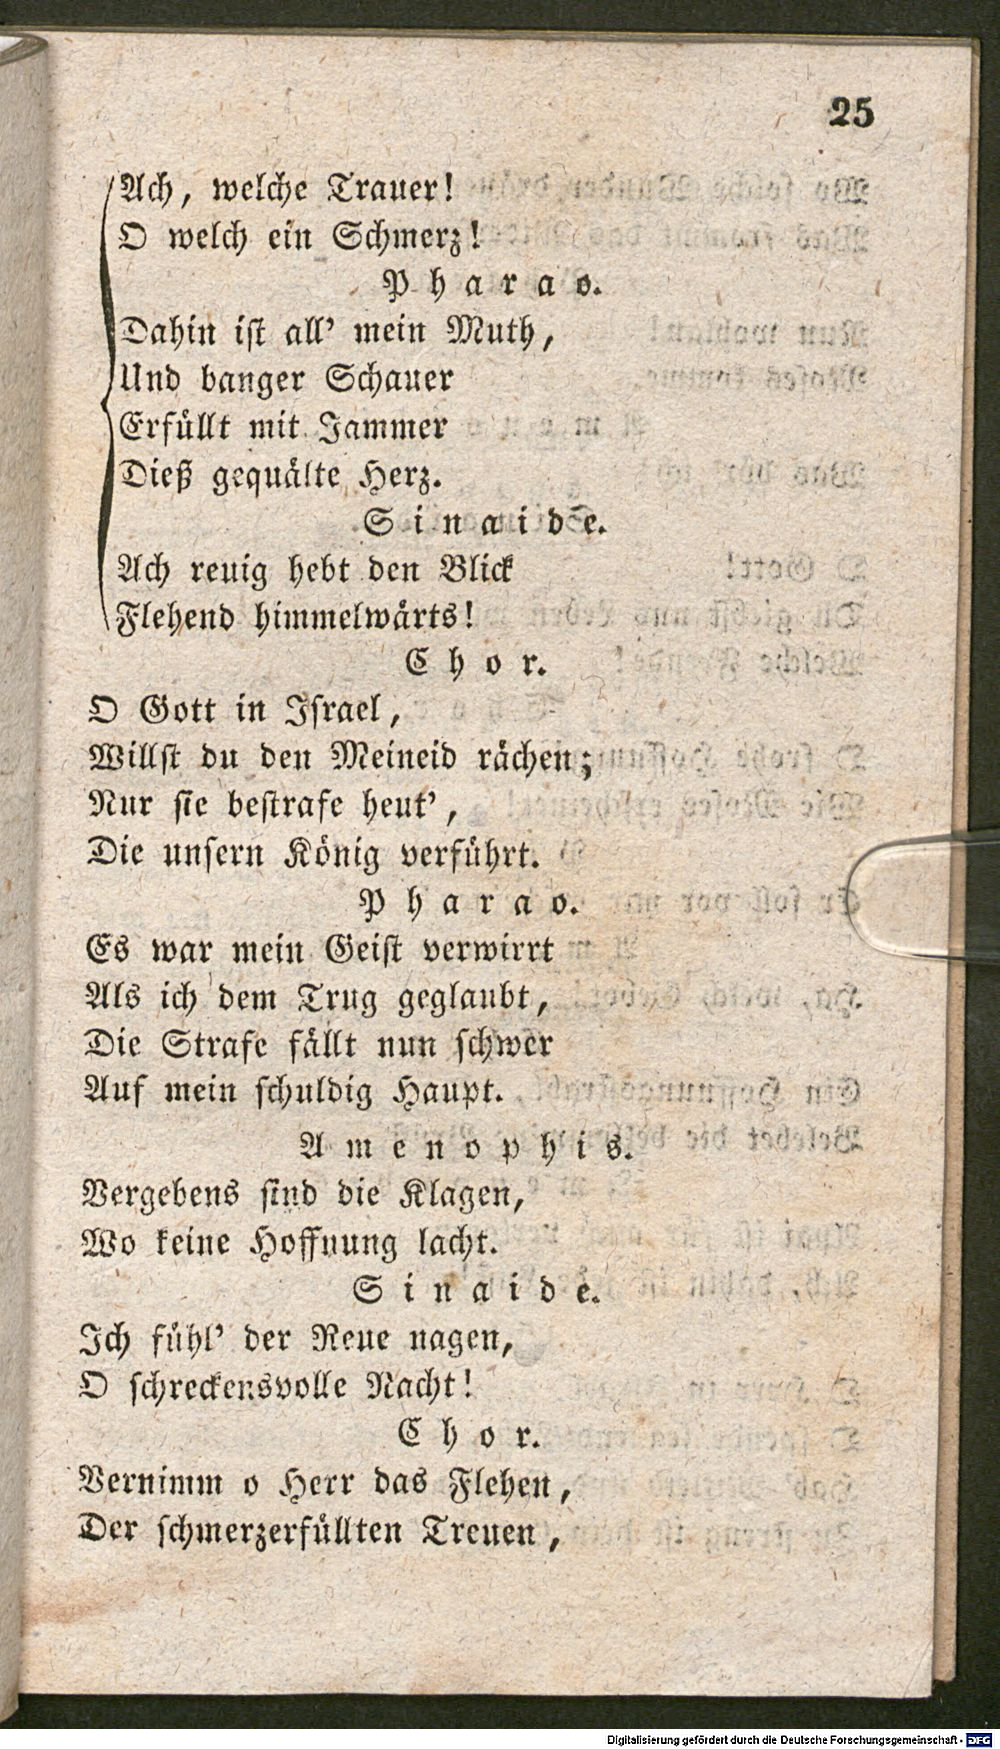 25
Ach, welche Trauer!
O welch ein Schmerz!
Pharao.
Dahin ist all' mein Muth,
Und banger Schauer
Erfüllt mit Jammer
Dieß gequälte Herz.
Sinaide.
Ach reuig hebt den Blick
Flehend himmelwärts!
Chor.
O Gott in Israel,
Willst du den Meineid rächen;
Nur sie bestrafe heut',
Die unsern König verführt.
Pharao.
Es war mein Geist verwirrt
Als ich dem Trug geglaubt,
Die Strafe fällt nun schwer
Auf mein schuldig Haupt.
Amenophis.
Vergebens sind die Klagen,
Wo keine Hoffnung lacht.
Sinaide.
Ich fühl' der Reue nagen,
O schreckensvolle Nacht!
Chor.
Vernimm o Herr das Flehen,
Der schmerzerfüllten Treuen,
Digitalisierung gefördert durch die Deutsche Forschungsgemeinschaft - DFG